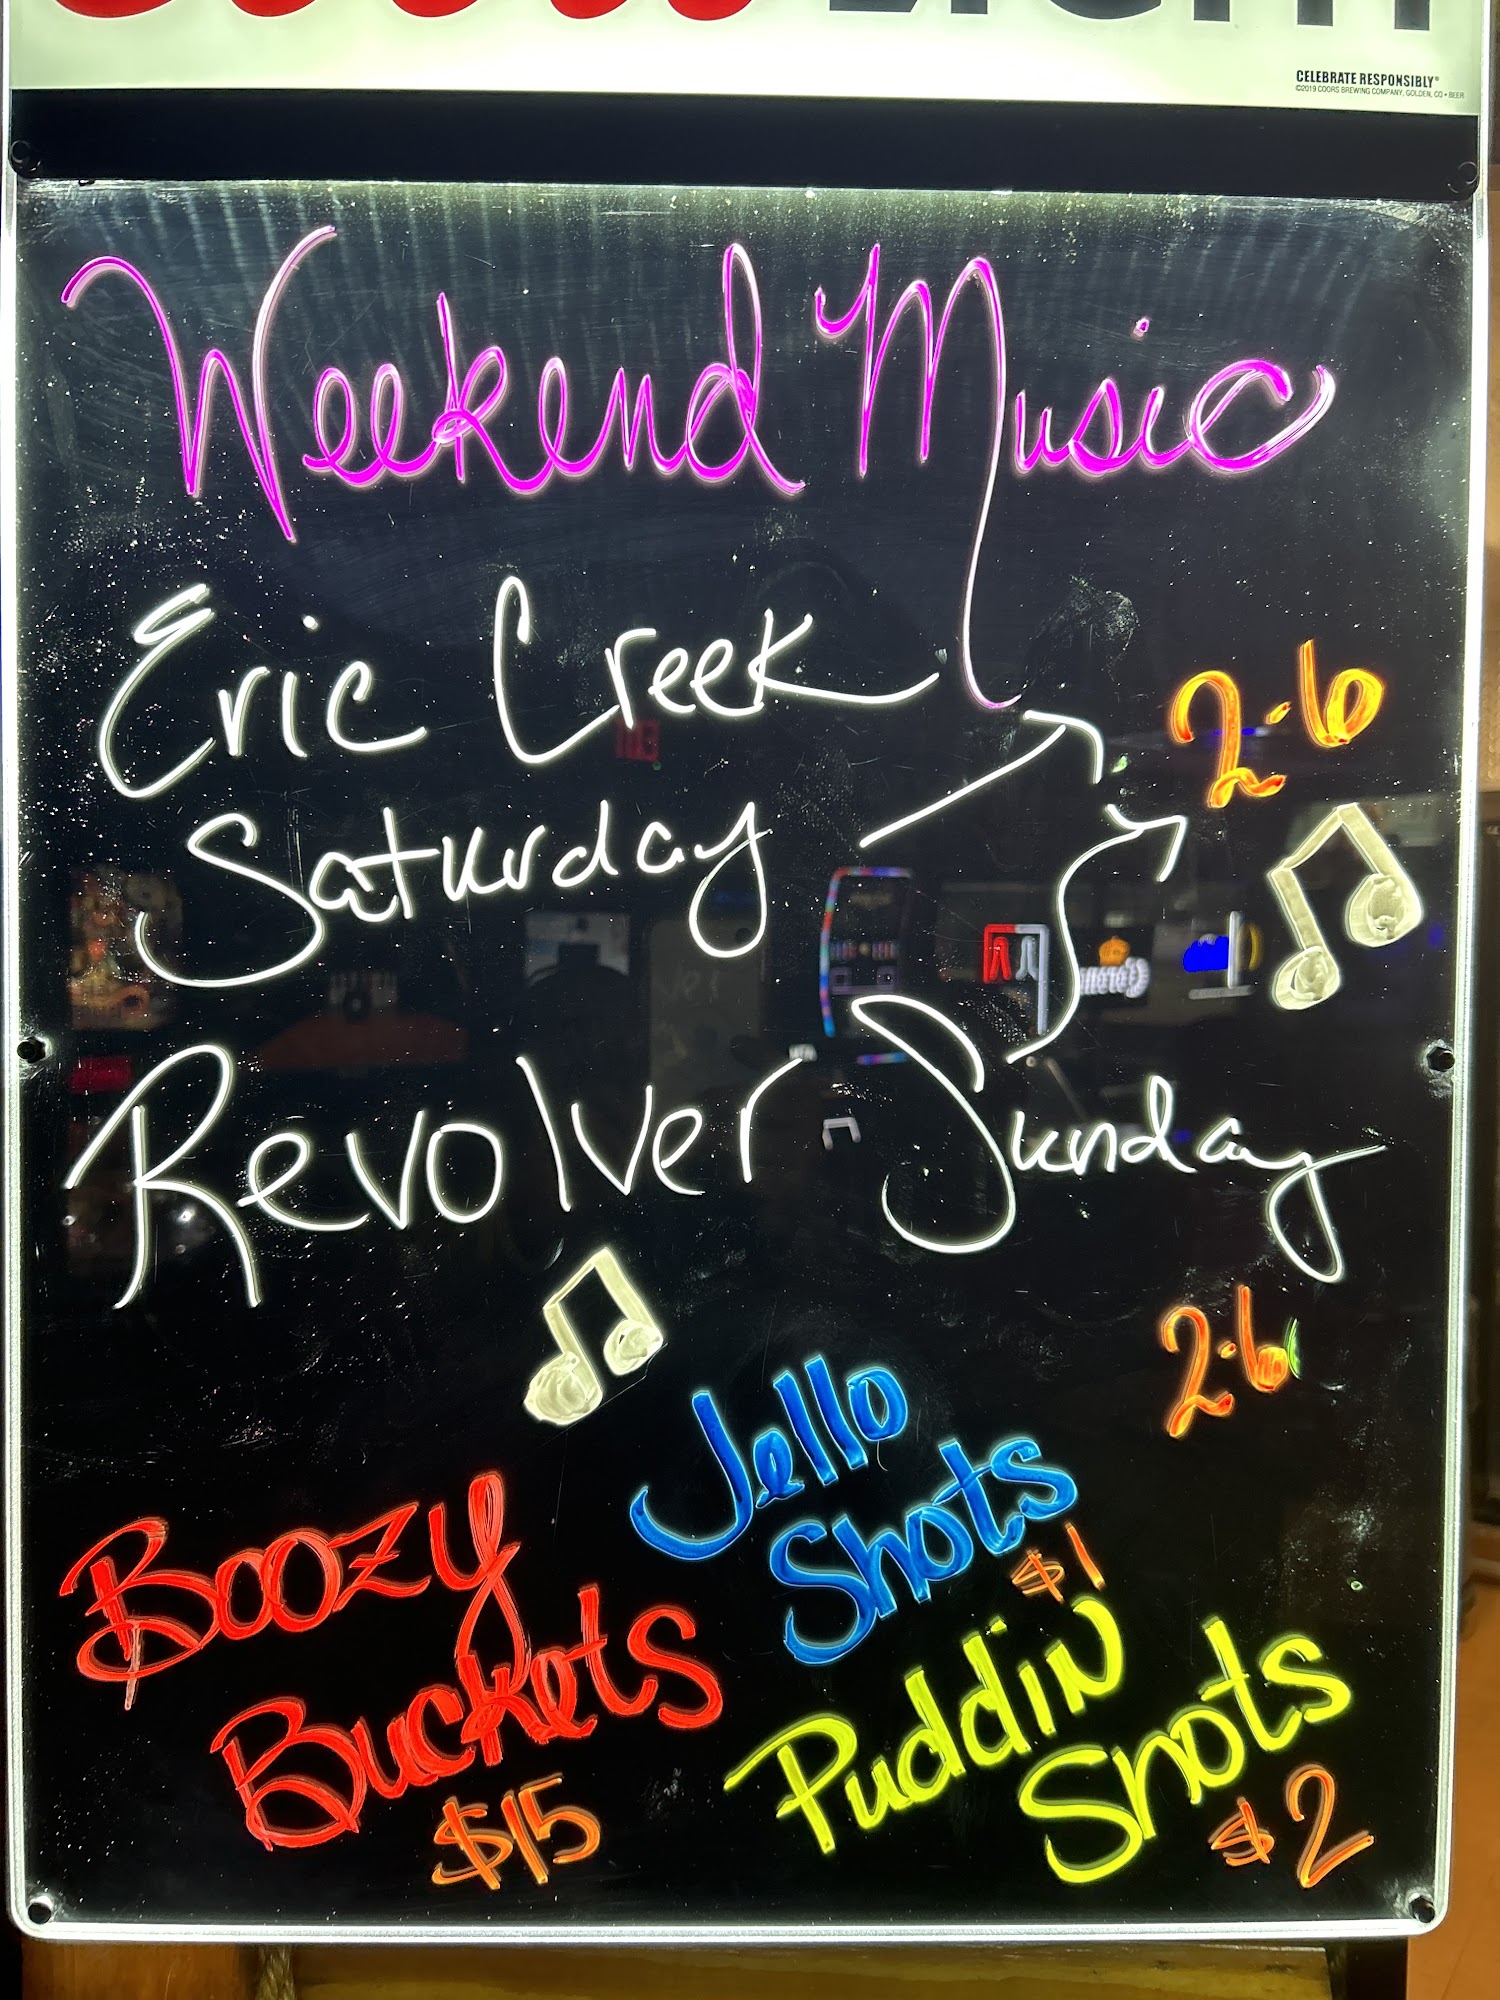 Coors Light
CELEBRATE RESPONSIBLY®
©2019 COORS BREWING COMPANY, GOLDEN, CO • BEER
Weekend Music
Eric Creek
2-6
Saturday
Revolver Sunday
2-6
Jello
Shots
$1
Boozy
Buckets
$15
Puddin
Shots
$2